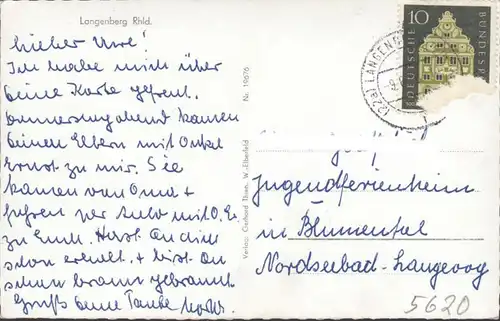 Langenberg Rhld.
Lieber Uwe!
Ich habe mich über
Deine Karte gefreut.
Donnerstagabend kamen
Deine Eltern mit Onkel
Ernst zu mir. Sie
kamen von Oma +
fuhren per Auto mit O. E.
zu Euch. Hast Du dich
schon erholt + bist Du
schon braun gebrannt.
Gruß Deine Tante
Nr. 19676
Verlag: Gerhard Thien, W.-Elberfeld
(22a) LANGENB
10
DEUTSCHE
BUNDESP
Jugendferienheim
in Blumental
Nordseebad-Langeoog
5620